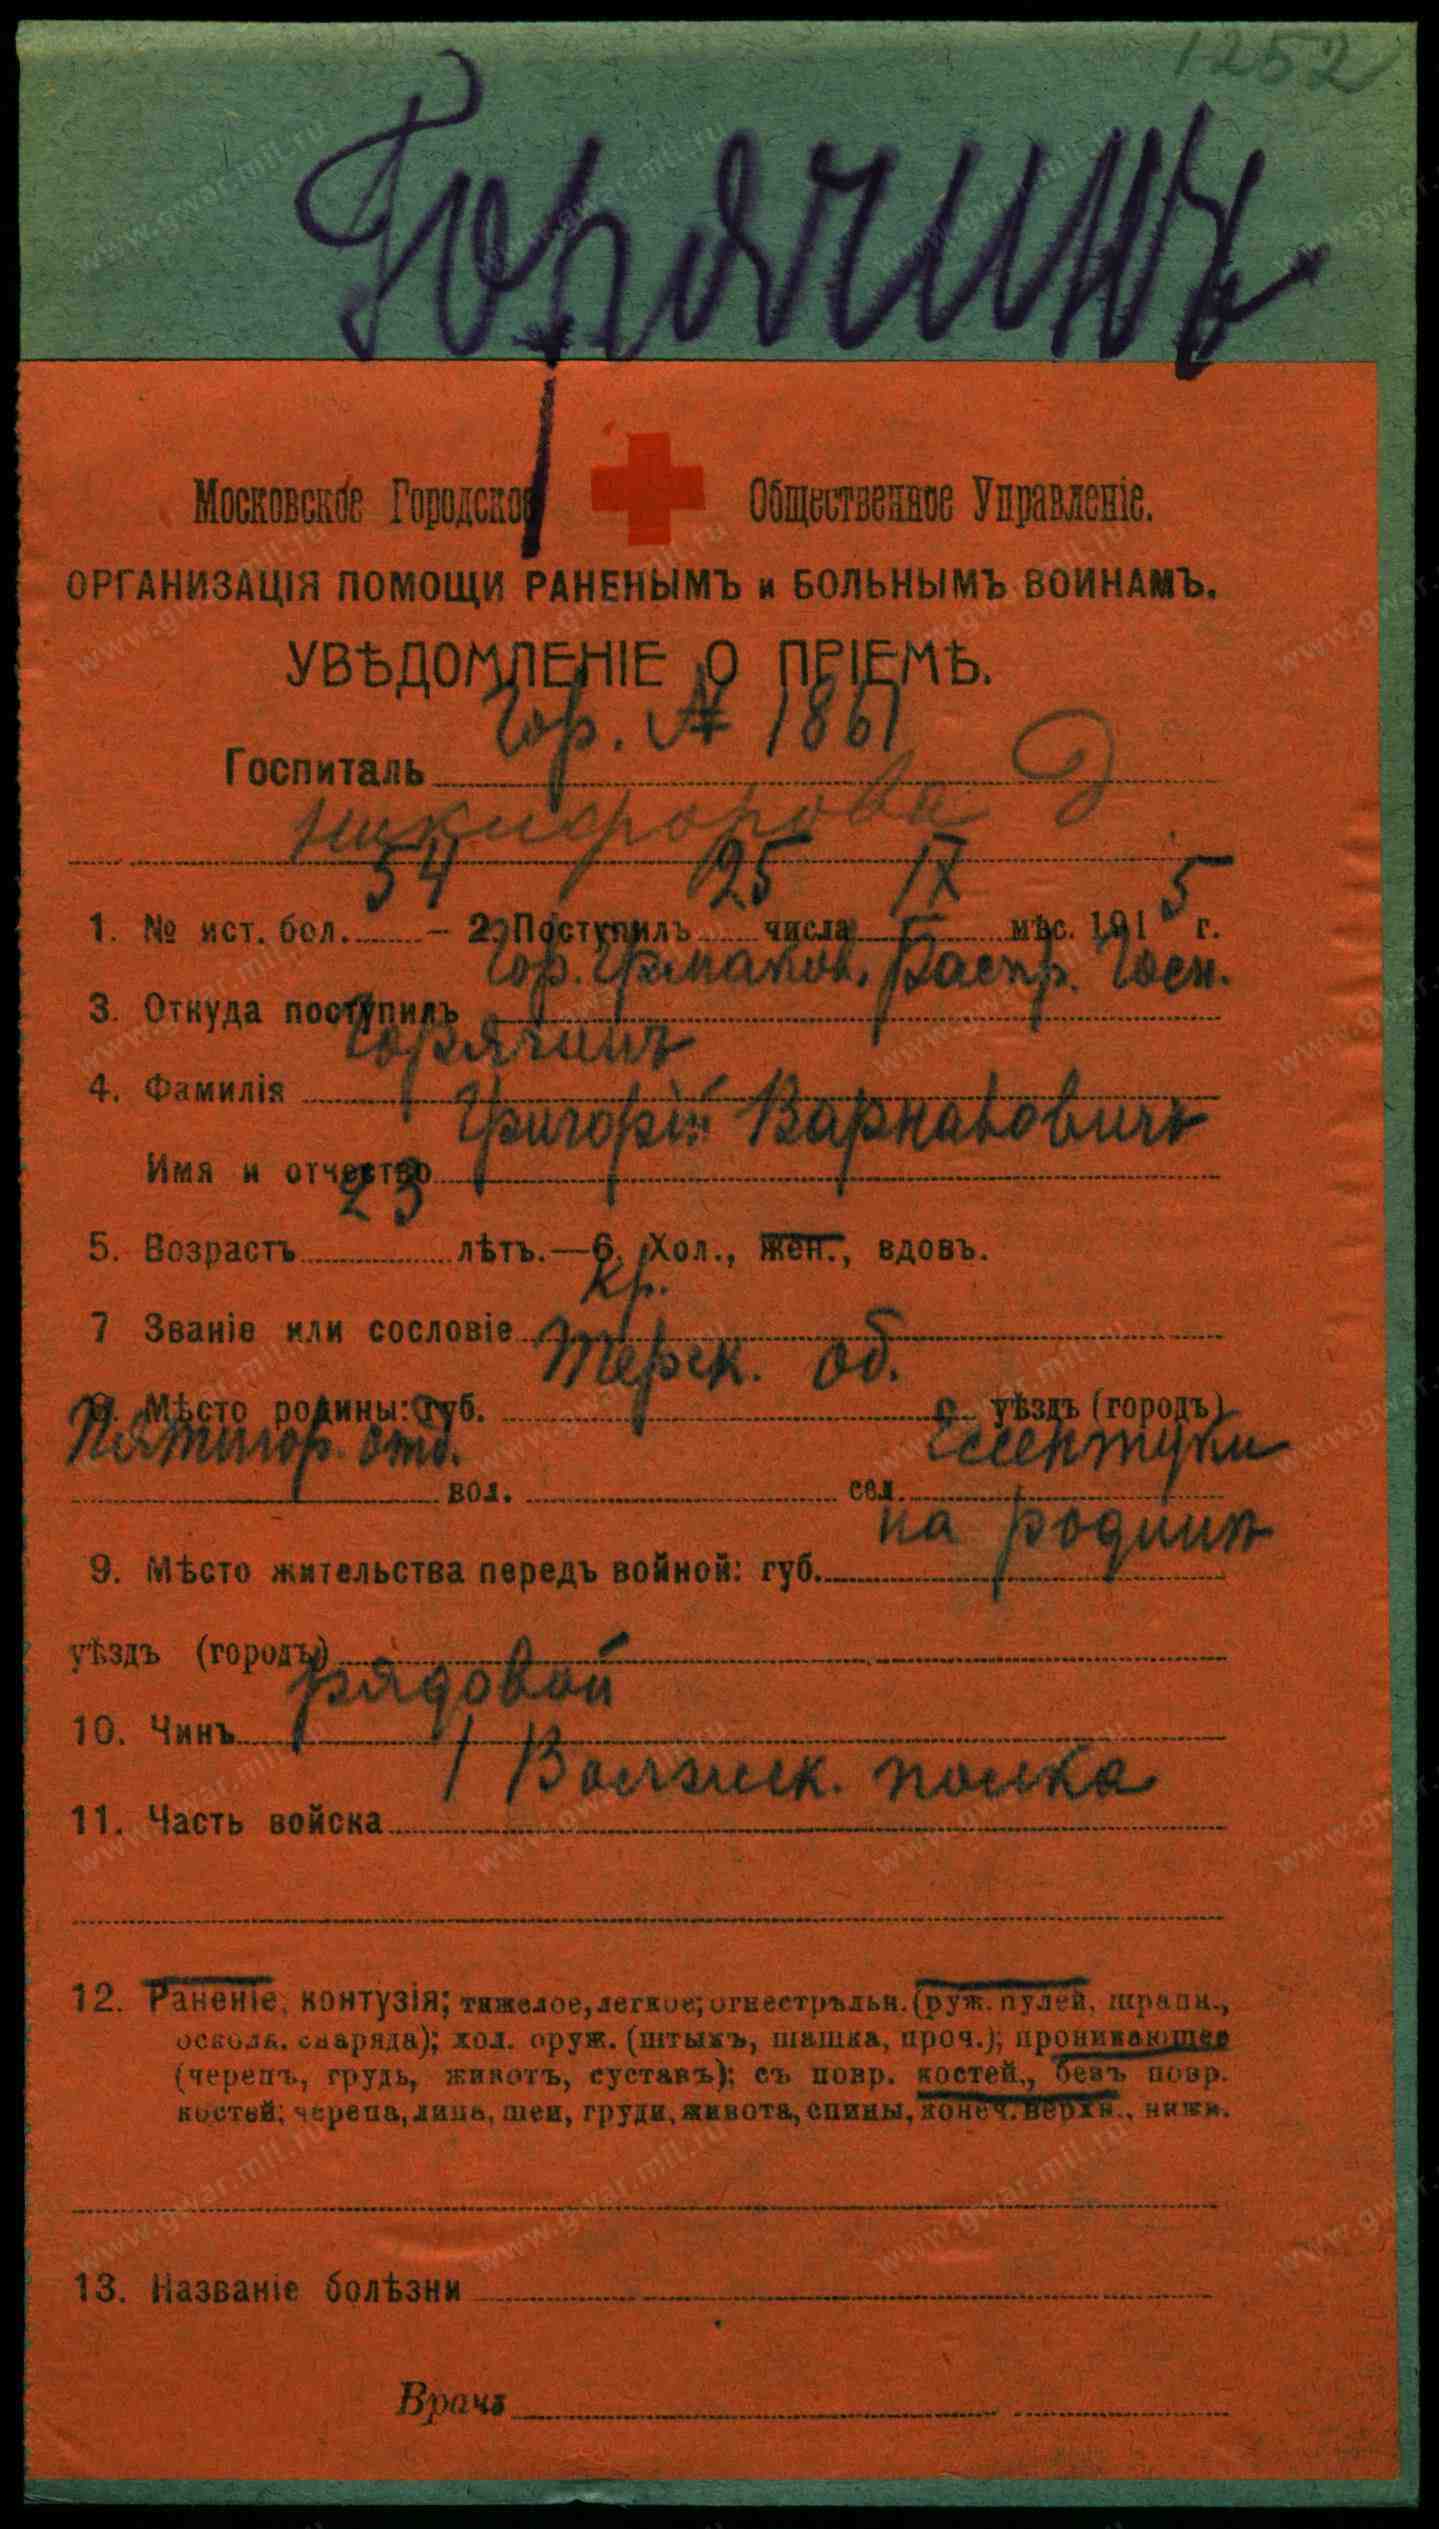 1252
Горячинъ
Московское Городское Общественное Управленіе.
ОРГАНИЗАЦІЯ ПОМОЩИ РАНЕНЫМЪ и БОЛЬНЫМЪ ВОИНАМЪ.
УВѢДОМЛЕНІЕ О ПРІЕМѢ.
Госпиталь Гор. № 1861
Никифорова Д
1. № ист. бол. 54 – 2. Поступилъ 25 числа IX мѣс. 1915 г.
3. Откуда поступилъ Гор. Ермаков. Распр. Госп.
4. Фамилія Горячинъ
Имя и отчество Григорій Варнавовичъ
5. Возрастъ 23 лѣтъ.—6. Хол., жен., вдовъ.
7 Званіе или сословіе кр.
8. Мѣсто родины: губ. Терск. об. уѣздъ (городъ)
Пятигор. отд. вол. сел. Ессентуки
9. Мѣсто жительства передъ войной: губ. на родинѣ
уѣздъ (городъ)
10. Чинъ рядовой
11. Часть войска 1 Волжск. полка
12. Раненіе, контузія; тяжелое, легкое; огнестрѣльн. (руж. пулей, шрапн.,
осколк. снаряда); хол. оруж. (штыкъ, шашка, проч.); проникающее
(черепъ, грудь, животъ, суставъ); съ повр. костей., безъ повр.
костей; черепа, лица, шеи, груди, живота, спины, конеч. верхн., нижн.
13. Названіе болѣзни
Врачъ
www.gwar.mil.ru